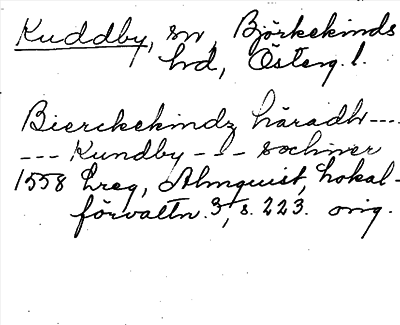 Kuddby, sn, Björkekinds
hd, Österg. l.
Bierckekindz häradh ---
--- Kundby --- sochner
1558 Lreg, Almquist, Lokal-
förvaltn. 3, s. 223. orig.